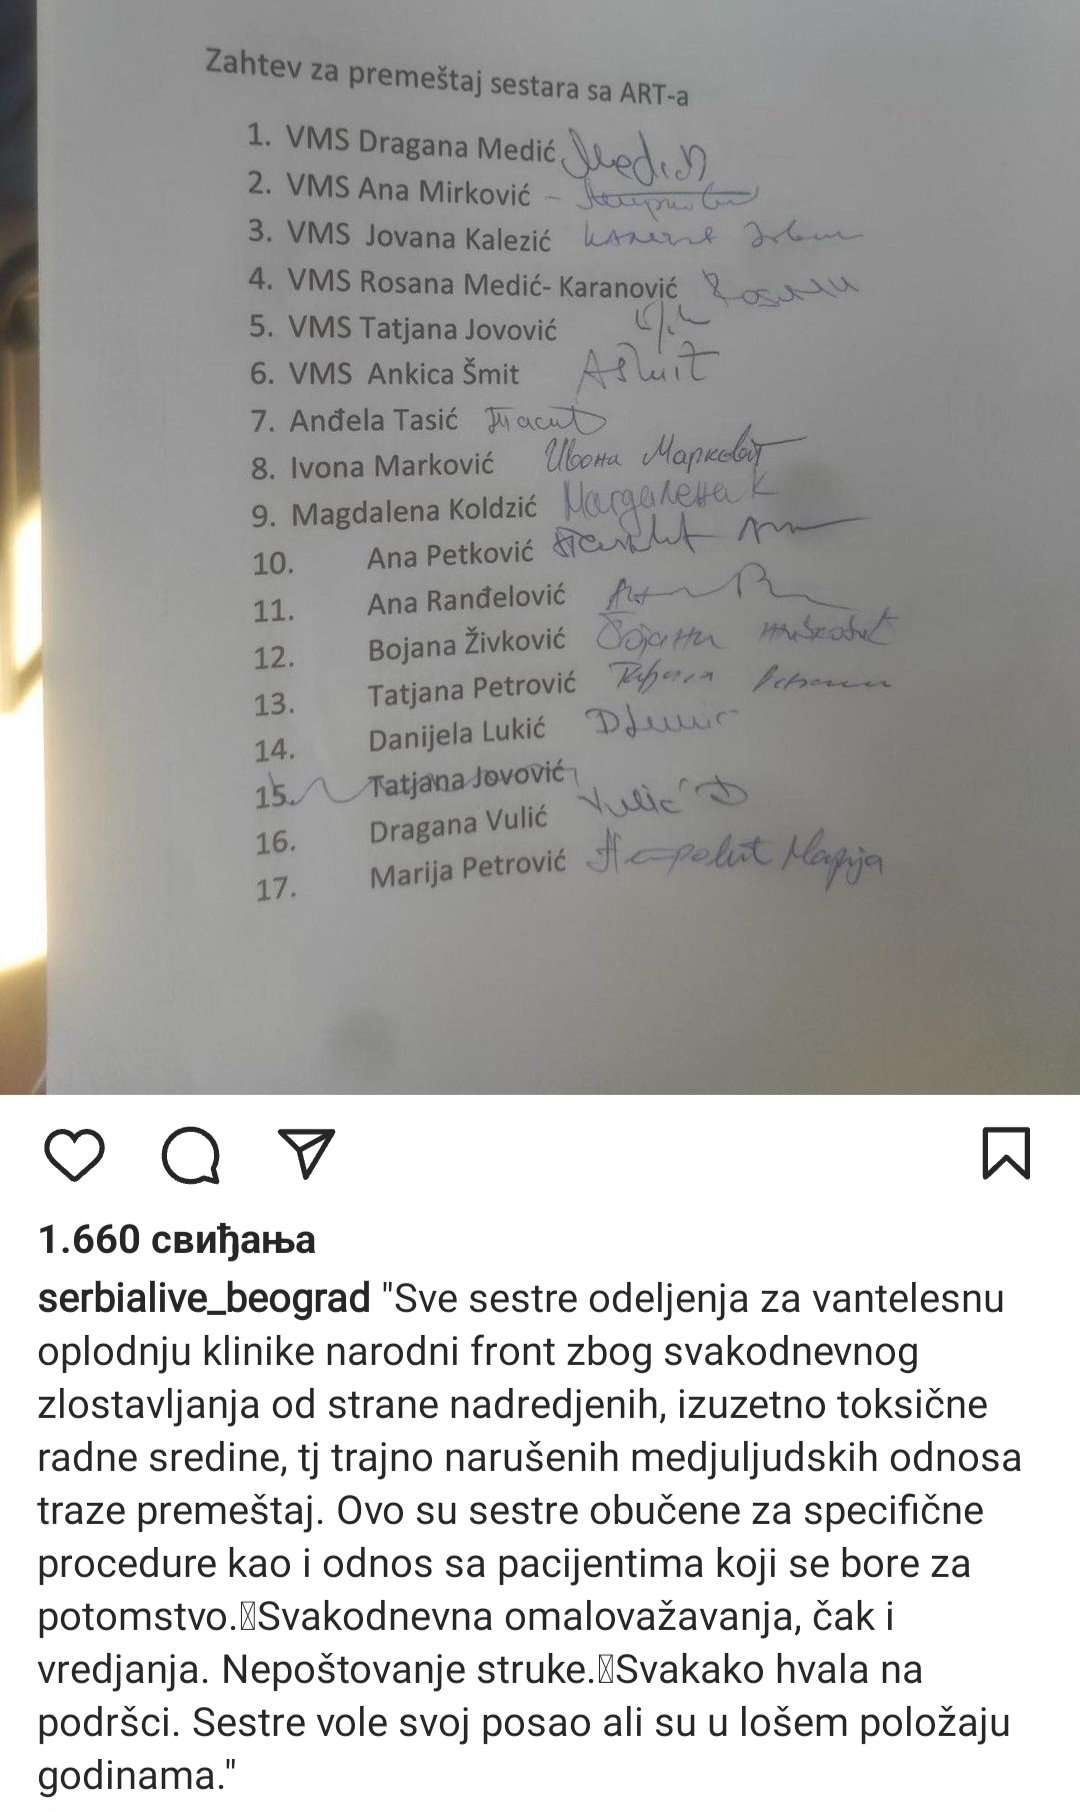 Zahtev za premeštaj sestara sa ART-a
1. VMS Dragana Medić Medić
2. VMS Ana Mirković -
3. VMS Jovana Kalezić
4. VMS Rosana Medić- Karanović
5. VMS Tatjana Jovović
6. VMS Ankica Šmit AŠmit
7. Anđela Tasić Тасић
8. Ivona Marković Ивона Марковић
9. Magdalena Koldzić Магдалена К
10. Ana Petković
11. Ana Ranđelović
12. Bojana Živković Бојана
13. Tatjana Petrović
14. Danijela Lukić
15. Tatjana Jovović
16. Dragana Vulić Vulić D
17. Marija Petrović Марија
1.660 свиђања
serbialive_beograd "Sve sestre odeljenja za vantelesnu
oplodnju klinike narodni front zbog svakodnevnog
zlostavljanja od strane nadredjenih, izuzetno toksične
radne sredine, tj trajno narušenih medjuljudskih odnosa
traze premeštaj. Ovo su sestre obučene za specifične
procedure kao i odnos sa pacijentima koji se bore za
potomstvo. Svakodnevna omalovažavanja, čak i
vredjanja. Nepoštovanje struke. Svakako hvala na
podršci. Sestre vole svoj posao ali su u lošem položaju
godinama."